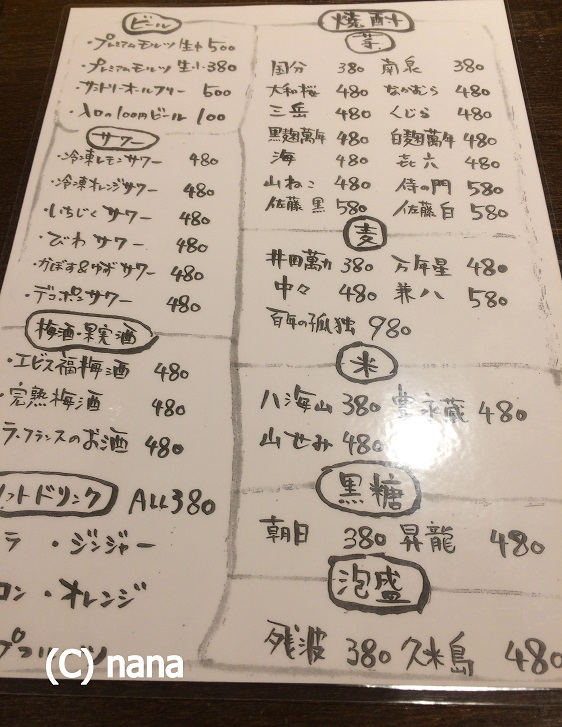 ビール
・プレミアムモルツ 生中 500
・プレミアムモルツ 生小 380
・サントリーオールフリー 500
・入口の100円ビール 100
サワー
・冷凍レモンサワー 480
・冷凍オレンジサワー 480
・いちじくサワー 480
・びわサワー 480
・かぼす&ゆずサワー 480
・デコポンサワー 480
梅酒・果実酒
・エビス福梅酒 480
・完熟梅酒 480
ラ・フランスのお酒 480
ソフトドリンク ALL380
ラ ・ジンジャー
ロン ・オレンジ
プフルーツ
焼酎
芋
国分 380 南泉 380
大和桜 480 なかむら 480
三岳 480 くじら 480
黒麹萬年 480 白麹萬年 480
海 480 㐂六 480
山ねこ 480 侍の門 580
佐藤 黒 580 佐藤 白 580
麦
井田萬力 380 万年星 480
中々 480 兼八 580
百年の孤独 980
米
八海山 380 豊永蔵 480
山せみ 480
黒糖
朝日 380 昇龍 480
泡盛
残波 380 久米島 480
(C) nana